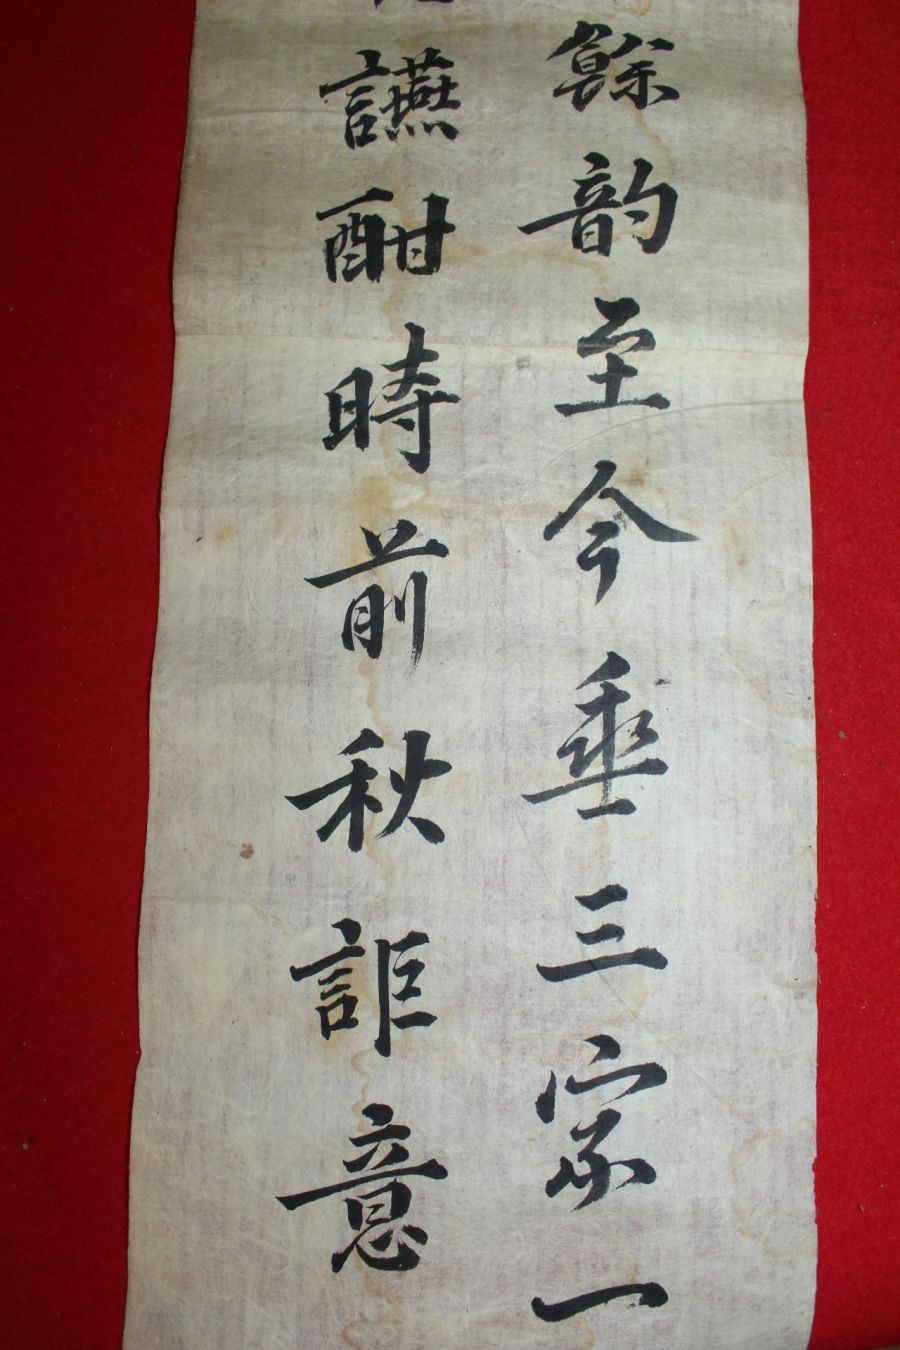 餘韵至今垂三家一
讌酣時前秋詎意